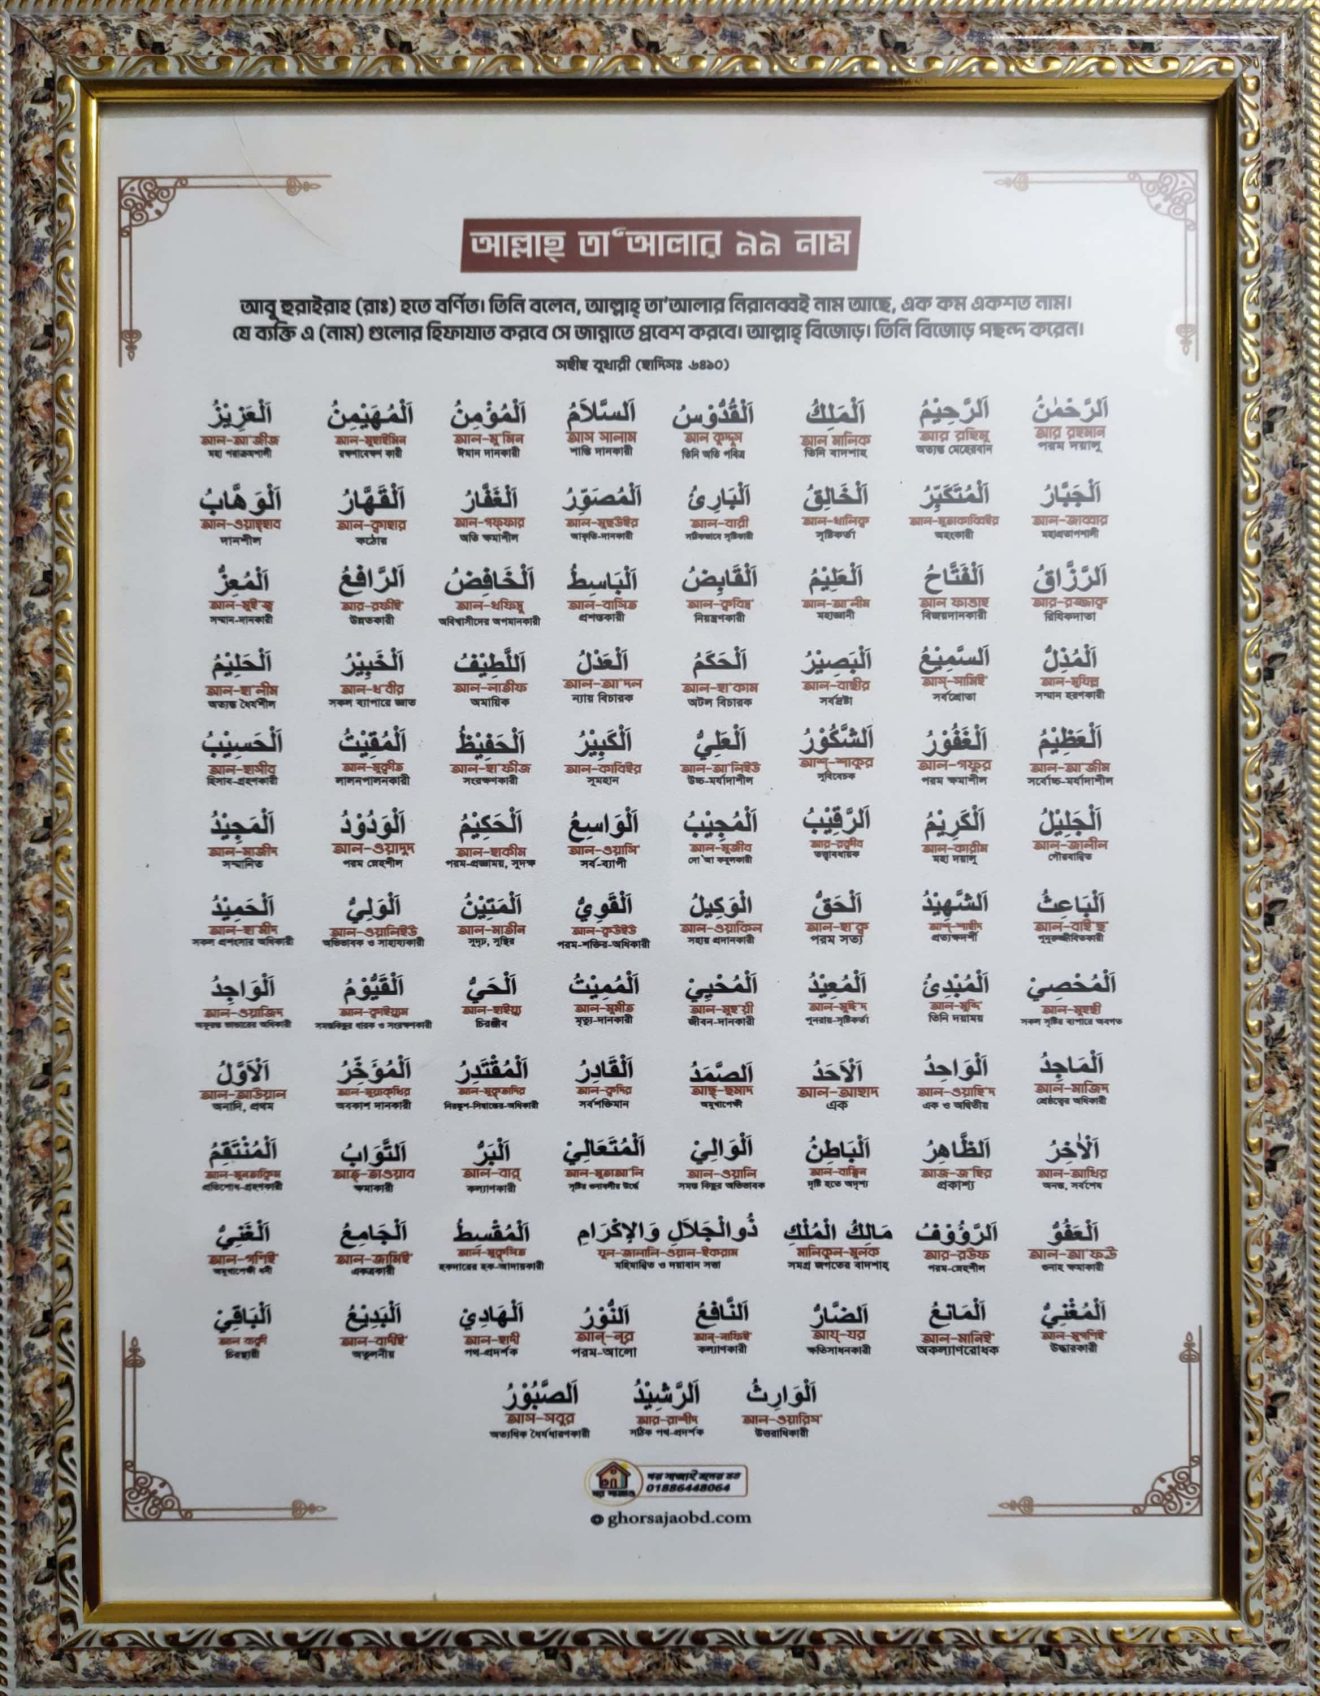 আল্লাহ্ তা‘আলার ৯৯ নাম
আবু হুরাইরাহ (রাঃ) হতে বর্ণিত। তিনি বলেন, আল্লাহ্ তা’আলার নিরানব্বই নাম আছে, এক কম একশত নাম।
যে ব্যক্তি এ (নাম) গুলোর হিফাযাত করবে সে জান্নাতে প্রবেশ করবে। আল্লাহ্ বিজোড়। তিনি বিজোড় পছন্দ করেন।
সহীহ বুখারী (হাদিসঃ ৬৪১০)
اَلرَّحْمٰنُ
আর রহমান
পরম দয়ালু
اَلرَّحِيْمُ
আর রহিমু
অত্যন্ত মেহেরবান
اَلْمَلِكُ
আল মালিক
তিনি বাদশাহ্
اَلْقُدُّوْسُ
আল কুদ্দুস
তিনি অতি পবিত্র
اَلسَّلَامُ
আস সালাম
শান্তি দানকারী
اَلْمُؤْمِنُ
আল-মু'মিন
ঈমান দানকারী
اَلْمُهَيْمِنُ
আল-মুহাইমিন
রক্ষণাবেক্ষণ কারী
اَلْعَزِيْزُ
আল-আ'জীজ
মহা পরাক্রমশালী
اَلْجَبَّارُ
আল-জাব্বার
মহাপ্রতাপশালী
اَلْمُتَكَبِّرُ
আল-মুতাকাব্বিইর
অহংকারী
اَلْخَالِقُ
আল-খালিক্ব
সৃষ্টিকর্তা
اَلْبَارِئُ
আল-বারী
সঠিকভাবে সৃষ্টিকারী
اَلْمُصَوِّرُ
আল-মুছউইর
আকৃতি-দানকারী
اَلْغَفَّارُ
আল-গফ্ফার
অতি ক্ষমাশীল
اَلْقَهَّارُ
আল-ক্বাহার
কঠোর
اَلْوَهَّابُ
আল-ওয়াহ্হাব
দানশীল
اَلرَّزَّاقُ
আর-রজ্জাক্ব
রিযিকদাতা
اَلْفَتَّاحُ
আল ফাত্তাহ
বিজয়দানকারী
اَلْعَلِيْمُ
আল-আ'লীম
মহাজ্ঞানী
اَلْقَابِضُ
আল-ক্ববিদ্ব'
নিয়ন্ত্রণকারী
اَلْبَاسِطُ
আল-বাসিত
প্রশস্তকারী
اَلْخَافِضُ
আল-খফিদ্বু
অবিশ্বাসীদের অপমানকারী
اَلرَّافِعُ
আর-রফীই'
উন্নতকারী
اَلْمُعِزُّ
আল-মুই'জ্ব
সম্মান-দানকারী
اَلْمُذِلُّ
আল-মুযিল্ল
সম্মান হরণকারী
اَلسَّمِيْعُ
আস্-সামিই'
সর্বশ্রোতা
اَلْبَصِيْرُ
আল-বাছীর
সর্বদ্রষ্টা
اَلْحَكَمُ
আল-হা'কাম
অটল বিচারক
اَلْعَدْلُ
আল-আ'দল
ন্যায় বিচারক
اَللَّطِيْفُ
আল-লাতীফ
অমায়িক
اَلْخَبِيْرُ
আল-খ'বীর
সকল ব্যাপারে জ্ঞাত
اَلْحَلِيْمُ
আল-হা'লীম
অত্যন্ত ধৈর্যশীল
اَلْعَظِيْمُ
আল-আ'জীম
সর্বোচ্চ-মর্যাদাশীল
اَلْغَفُوْرُ
আল-গফুর
পরম ক্ষমাশীল
اَلشَّكُوْرُ
আশ্-শাকুর
সুবিবেচক
اَلْعَلِيُّ
আল-আ'লিইউ
উচ্চ-মর্যাদাশীল
اَلْكَبِيْرُ
আল-কাবিইর
সুমহান
اَلْحَفِيْظُ
আল-হা'ফীজ
সংরক্ষণকারী
اَلْمُقِيْتُ
আল-মুক্বীত
লালনপালনকারী
اَلْحَسِيْبُ
আল-হাসীব
হিসাব-গ্রহণকারী
اَلْجَلِيْلُ
আল-জালীল
গৌরবান্বিত
اَلْكَرِيْمُ
আল-কারীম
মহা দয়ালু
اَلرَّقِيْبُ
আর-রক্বীব
তত্ত্বাবধায়ক
اَلْمُجِيْبُ
আল-মুজীব
দো'আ কবুলকারী
اَلْوَاسِعُ
আল-ওয়াসি'
সর্ব-ব্যাপী
اَلْحَكِيْمُ
আল-হাকীম
পরম-প্রজ্ঞাময়, সুদক্ষ
اَلْوَدُوْدُ
আল-ওয়াদুদ
পরম স্নেহশীল
اَلْمَجِيْدُ
আল-মাজীদ
সম্মানিত
اَلْبَاعِثُ
আল-বাই'ছ
পুনরুজ্জীবিতকারী
اَلشَّهِيْدُ
আশ্-শাহীদ
প্রত্যক্ষদর্শী
اَلْحَقُّ
আল-হা'ক্ব
পরম সত্য
اَلْوَكِيْلُ
আল-ওয়াকিল
সহায় প্রদানকারী
اَلْقَوِيُّ
আল-ক্বউইউ
পরম-শক্তির-অধিকারী
اَلْمَتِيْنُ
আল-মাতীন
সুদৃঢ়, সুস্থির
اَلْوَلِيُّ
আল-ওয়ালিইউ
অভিভাবক ও সাহায্যকারী
اَلْحَمِيْدُ
আল-হা'মীদ
সকল প্রশংসার অধিকারী
اَلْمُحْصِيْ
আল-মুহছী
সকল সৃষ্টির ব্যপারে অবগত
اَلْمُبْدِئُ
আল-মুব্দি
তিনি দয়াময়
اَلْمُعِيْدُ
আল-মুঈ'দ
পুনরায়-সৃষ্টিকর্তা
اَلْمُحْيِيْ
আল-মুহ'য়ী
জীবন-দানকারী
اَلْمُمِيْتُ
আল-মুমীত
মৃত্যু-দানকারী
اَلْحَيُّ
আল-হাইয়্যু
চিরঞ্জীব
اَلْقَيُّوْمُ
আল-ক্বাইয়্যুম
সমস্তকিছুর ধারক ও সংরক্ষণকারী
اَلْوَاجِدُ
আল-ওয়াজিদ
অফুরন্ত ভান্ডারের অধিকারী
اَلْمَاجِدُ
আল-মাজিদ
শ্রেষ্ঠত্বের অধিকারী
اَلْوَاحِدُ
আল-ওয়াহি'দ
এক ও অদ্বিতীয়
اَلْاَحَدُ
আল-আহাদ
এক
اَلصَّمَدُ
আছ্-ছমাদ
অমুখাপেক্ষী
اَلْقَادِرُ
আল-ক্বদির
সর্বশক্তিমান
اَلْمُقْتَدِرُ
আল-মুক্ব্তাদির
নিরঙ্কুশ-সিদ্বান্তের-অধিকারী
اَلْمُؤَخِّرُ
আল-মুয়াক্খির
অবকাশ দানকারী
اَلْاَوَّلُ
আল-আউয়াল
অনাদি, প্রথম
اَلْاٰخِرُ
আল-আখির
অনন্ত, সর্বশেষ
اَلظَّاهِرُ
আজ-জ'হির
প্রকাশ্য
اَلْبَاطِنُ
আল-বাত্বিন
দৃষ্টি হতে অদৃশ্য
اَلْوَالِيْ
আল-ওয়ালি
সমস্ত কিছুর অভিভাবক
اَلْمُتَعَالِيْ
আল-মুতাআ'লি
সৃষ্টির গুনাবলীর উর্দ্ধে
اَلْبَرُّ
আল-বার্
কল্যাণকারী
اَلتَّوَّابُ
আত্-তাওয়াব
ক্ষমাকারী
اَلْمُنْتَقِمُ
আল-মুনতাক্বিম
প্রতিশোধ-গ্রহণকারী
اَلْعَفُوُّ
আল-আ'ফউ
গুনাহ ক্ষমাকারী
اَلرَّؤُوْفُ
আর-রউফ
পরম-স্নেহশীল
مَالِكُ الْمُلْكِ
মালিকুল-মুলক
সমগ্র জগতের বাদশাহ্
ذُوالْجَلَالِ وَالْاِكْرَامِ
যুল-জালালি-ওয়াল-ইকরাম
মহিমান্বিত ও দয়াবান সত্তা
اَلْمُقْسِطُ
আল-মুক্বসিত
হকদারের হক-আদায়কারী
اَلْجَامِعُ
আল-জামিই'
একত্রকারী
اَلْغَنِيُّ
আল-গণিই'
অমুখাপেক্ষী ধনী
اَلْمُغْنِيُّ
আল-মুগণিই'
উদ্ধারকারী
اَلْمَانِعُ
আল-মানিই'
অকল্যাণরোধক
اَلضَّارُّ
আয্-যর
ক্ষতিসাধনকারী
اَلنَّافِعُ
আন্-নাফিই'
কল্যাণকারী
اَلنُّوْرُ
আন্-নূর
পরম-আলো
اَلْهَادِيْ
আল-হাদী
পথ-প্রদর্শক
اَلْبَدِيْعُ
আল-বাদীই'
অতুলনীয়
اَلْبَاقِيْ
আল বাক্বী
চিরস্থায়ী
اَلْوَارِثُ
আল-ওয়ারিস'
উত্তরাধিকারী
اَلرَّشِيْدُ
আর-রাশীদ
সঠিক পথ-প্রদর্শক
اَلصَّبُوْرُ
আস-সবুর
অত্যধিক ধৈর্যধারণকারী
ঘর সাজাই মনের মত
01886448064
ghorsajaobd.com